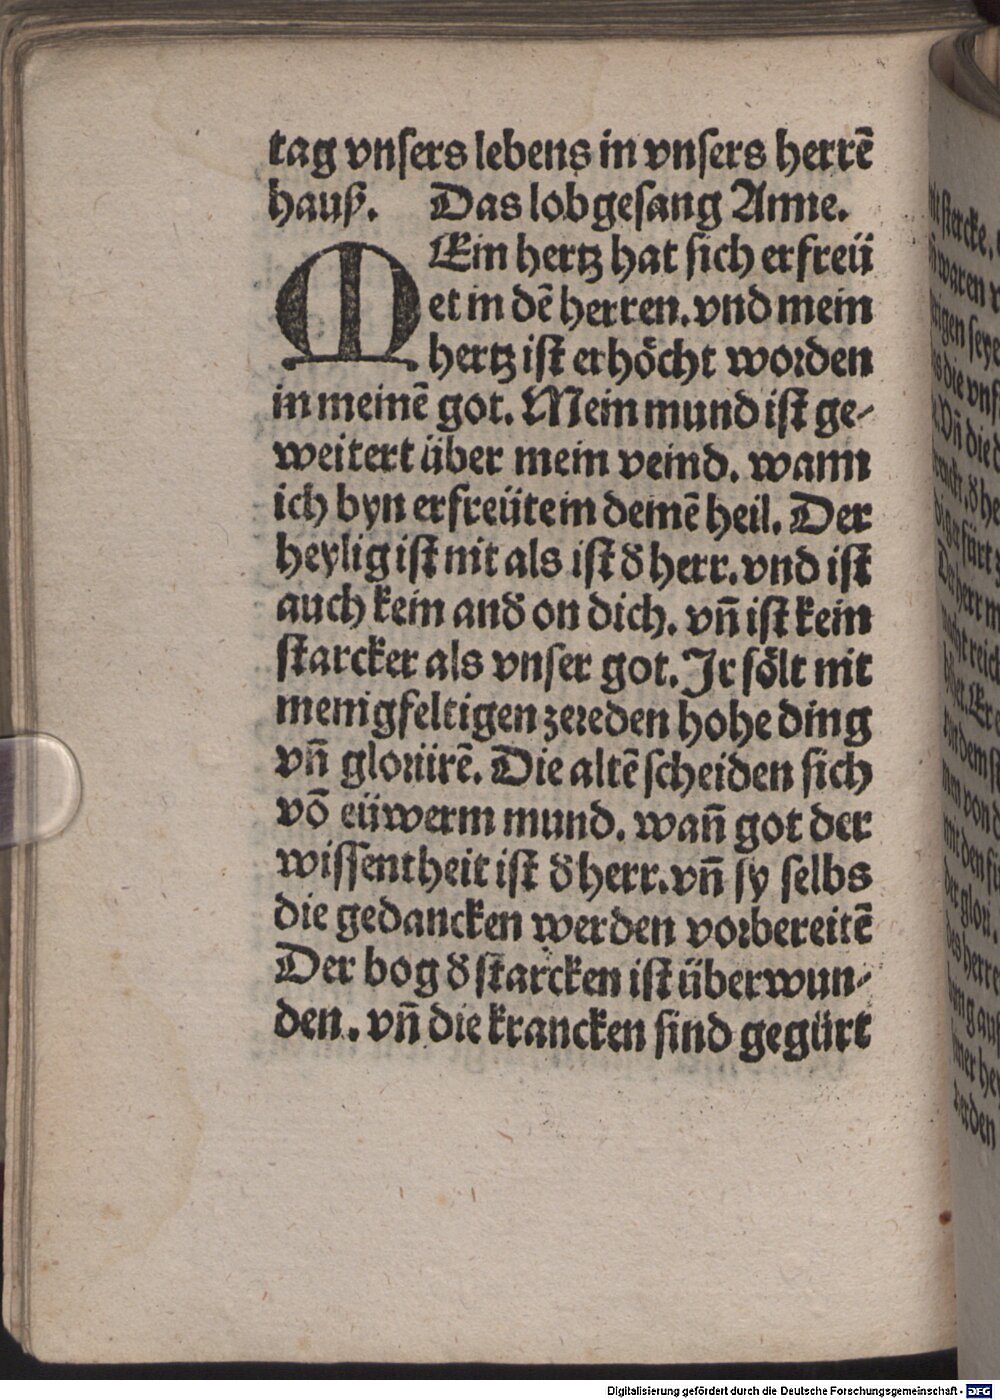 tag vnsers lebens in vnsers herrẽ
hauß. Das lobgesang Anne.
MEin hertz hat sich erfreü
et in dẽ herren. vnd mein
hertz ist erhöcht worden
in meinẽ got. Mein mund ist ge-
weitert über mein veind. wann
ich byn erfreüt ein demẽ heil. Der
heylig ist nit als ist đ herr. vnd ist
auch kein anđ on dich. vñ ist kein
starcker als vnser got. Ir sölt nit
menigfeltigen zereden hohe ding
vñ gloriirẽ. Die altẽ scheiden sich
võ eüwerm mund. wañ got der
wissentheit ist đ herr. vñ sy selbs
die gedancken werden vorbereitẽ
Der bog đ starcken ist überwun-
den. vñ die krancken sind gegürt
Digitalisierung gefördert durch die Deutsche Forschungsgemeinschaft - DFG